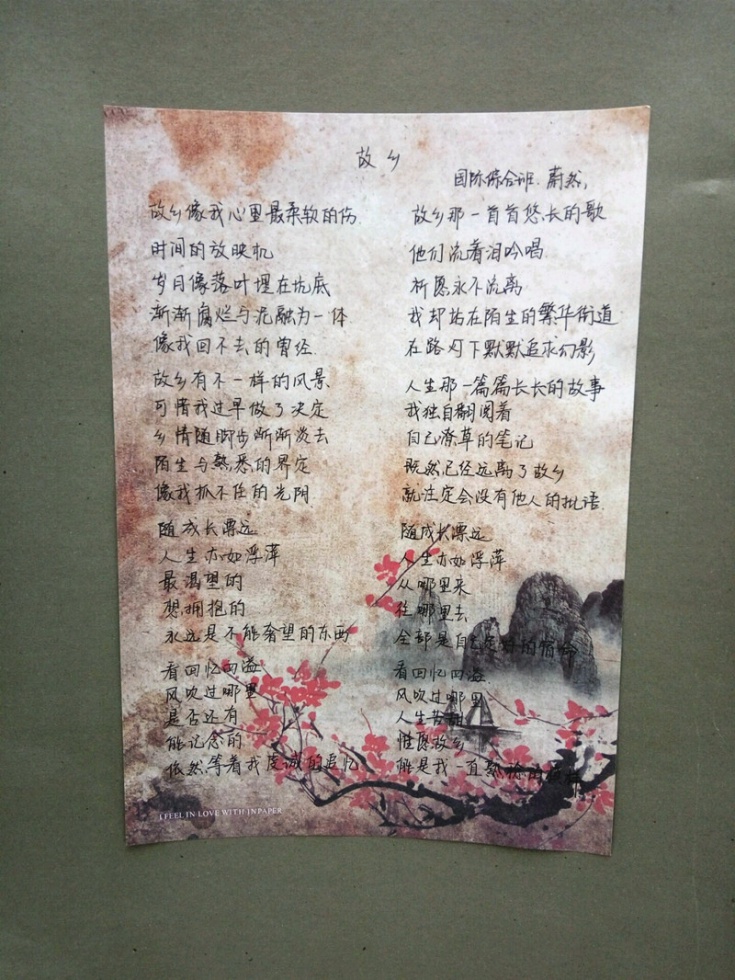 故乡
国际综合班 蔚然,
故乡像我心里最柔软的伤
时间的放映机
岁月像落叶埋在坑底
渐渐腐烂与泥融为一体
像我回不去的曾经.
故乡有不一样的风景
可惜我过早做了决定
乡情随脚步渐渐淡去
陌生与熟悉的界定
像我抓不住的光阴
随成长漂远
人生亦如浮萍
最渴望的
想拥抱的
永远是不能奢望的东西
看回忆四溢
风吹过哪里
是否还有
能记念的
依然等着我虔诚的追忆
故乡那一首首悠长的歌
他们流着泪吟唱
祈愿永不流离
我却站在陌生的繁华街道
在路灯下默默追求幻影
人生那一篇篇长长的故事
我独自翻阅着
自己潦草的笔记
既然已经远离了故乡
就注定会没有他人的批语.
随成长漂远
人生亦如浮萍
从哪里来
往哪里去
全部是自己定好的宿命
看回忆四溢
风吹过哪里
人生苦甜
惟愿故乡
解是我一直熟
I FEEL IN LOVE WITH JNPAPER